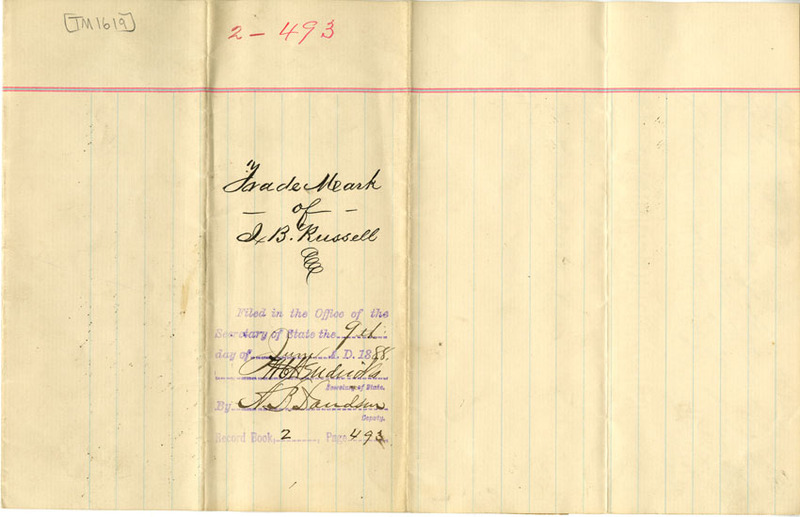 [TM1619]
2-493
Trade Mark
— of —
J. B. Russell
Filed in the Office of the
Secretary of State the 9th
day of June A. D. 1888.
W C Hendricks
Secretary of State.
By A. B. Davidson
Deputy.
Record Book, 2, Page 493